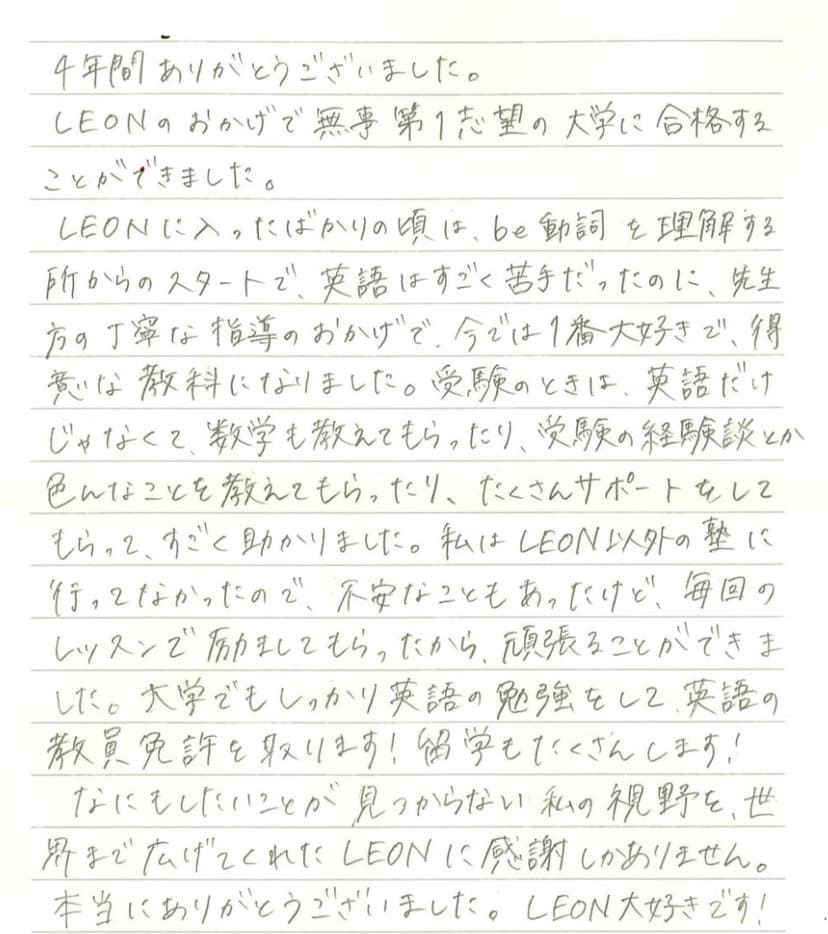 4年間ありがとうございました。
LEONのおかげで無事第1志望の大学に合格する
ことができました。
LEONに入ったばかりの頃は、be動詞を理解する
所からのスタートで、英語はすごく苦手だったのに、先生
方の丁寧な指導のおかげで、今では1番大好きで、得
意な教科になりました。受験のときは、英語だけ
じゃなくて、数学も教えてもらったり、受験の経験談とか
色んなことを教えてもらったり、たくさんサポートをして
もらって、すごく助かりました。私はLEON以外の塾に
行ってなかったので、不安なこともあったけど、毎回の
レッスンで励ましてもらったから、頑張ることができま
した。大学でもしっかり英語の勉強をして、英語の
教員免許を取ります!留学もたくさんします!
なにもしたいことが見つからない私の視野を、世
界まで広げてくれたLEONに感謝しかありません。
本当にありがとうございました。LEON大好きです!